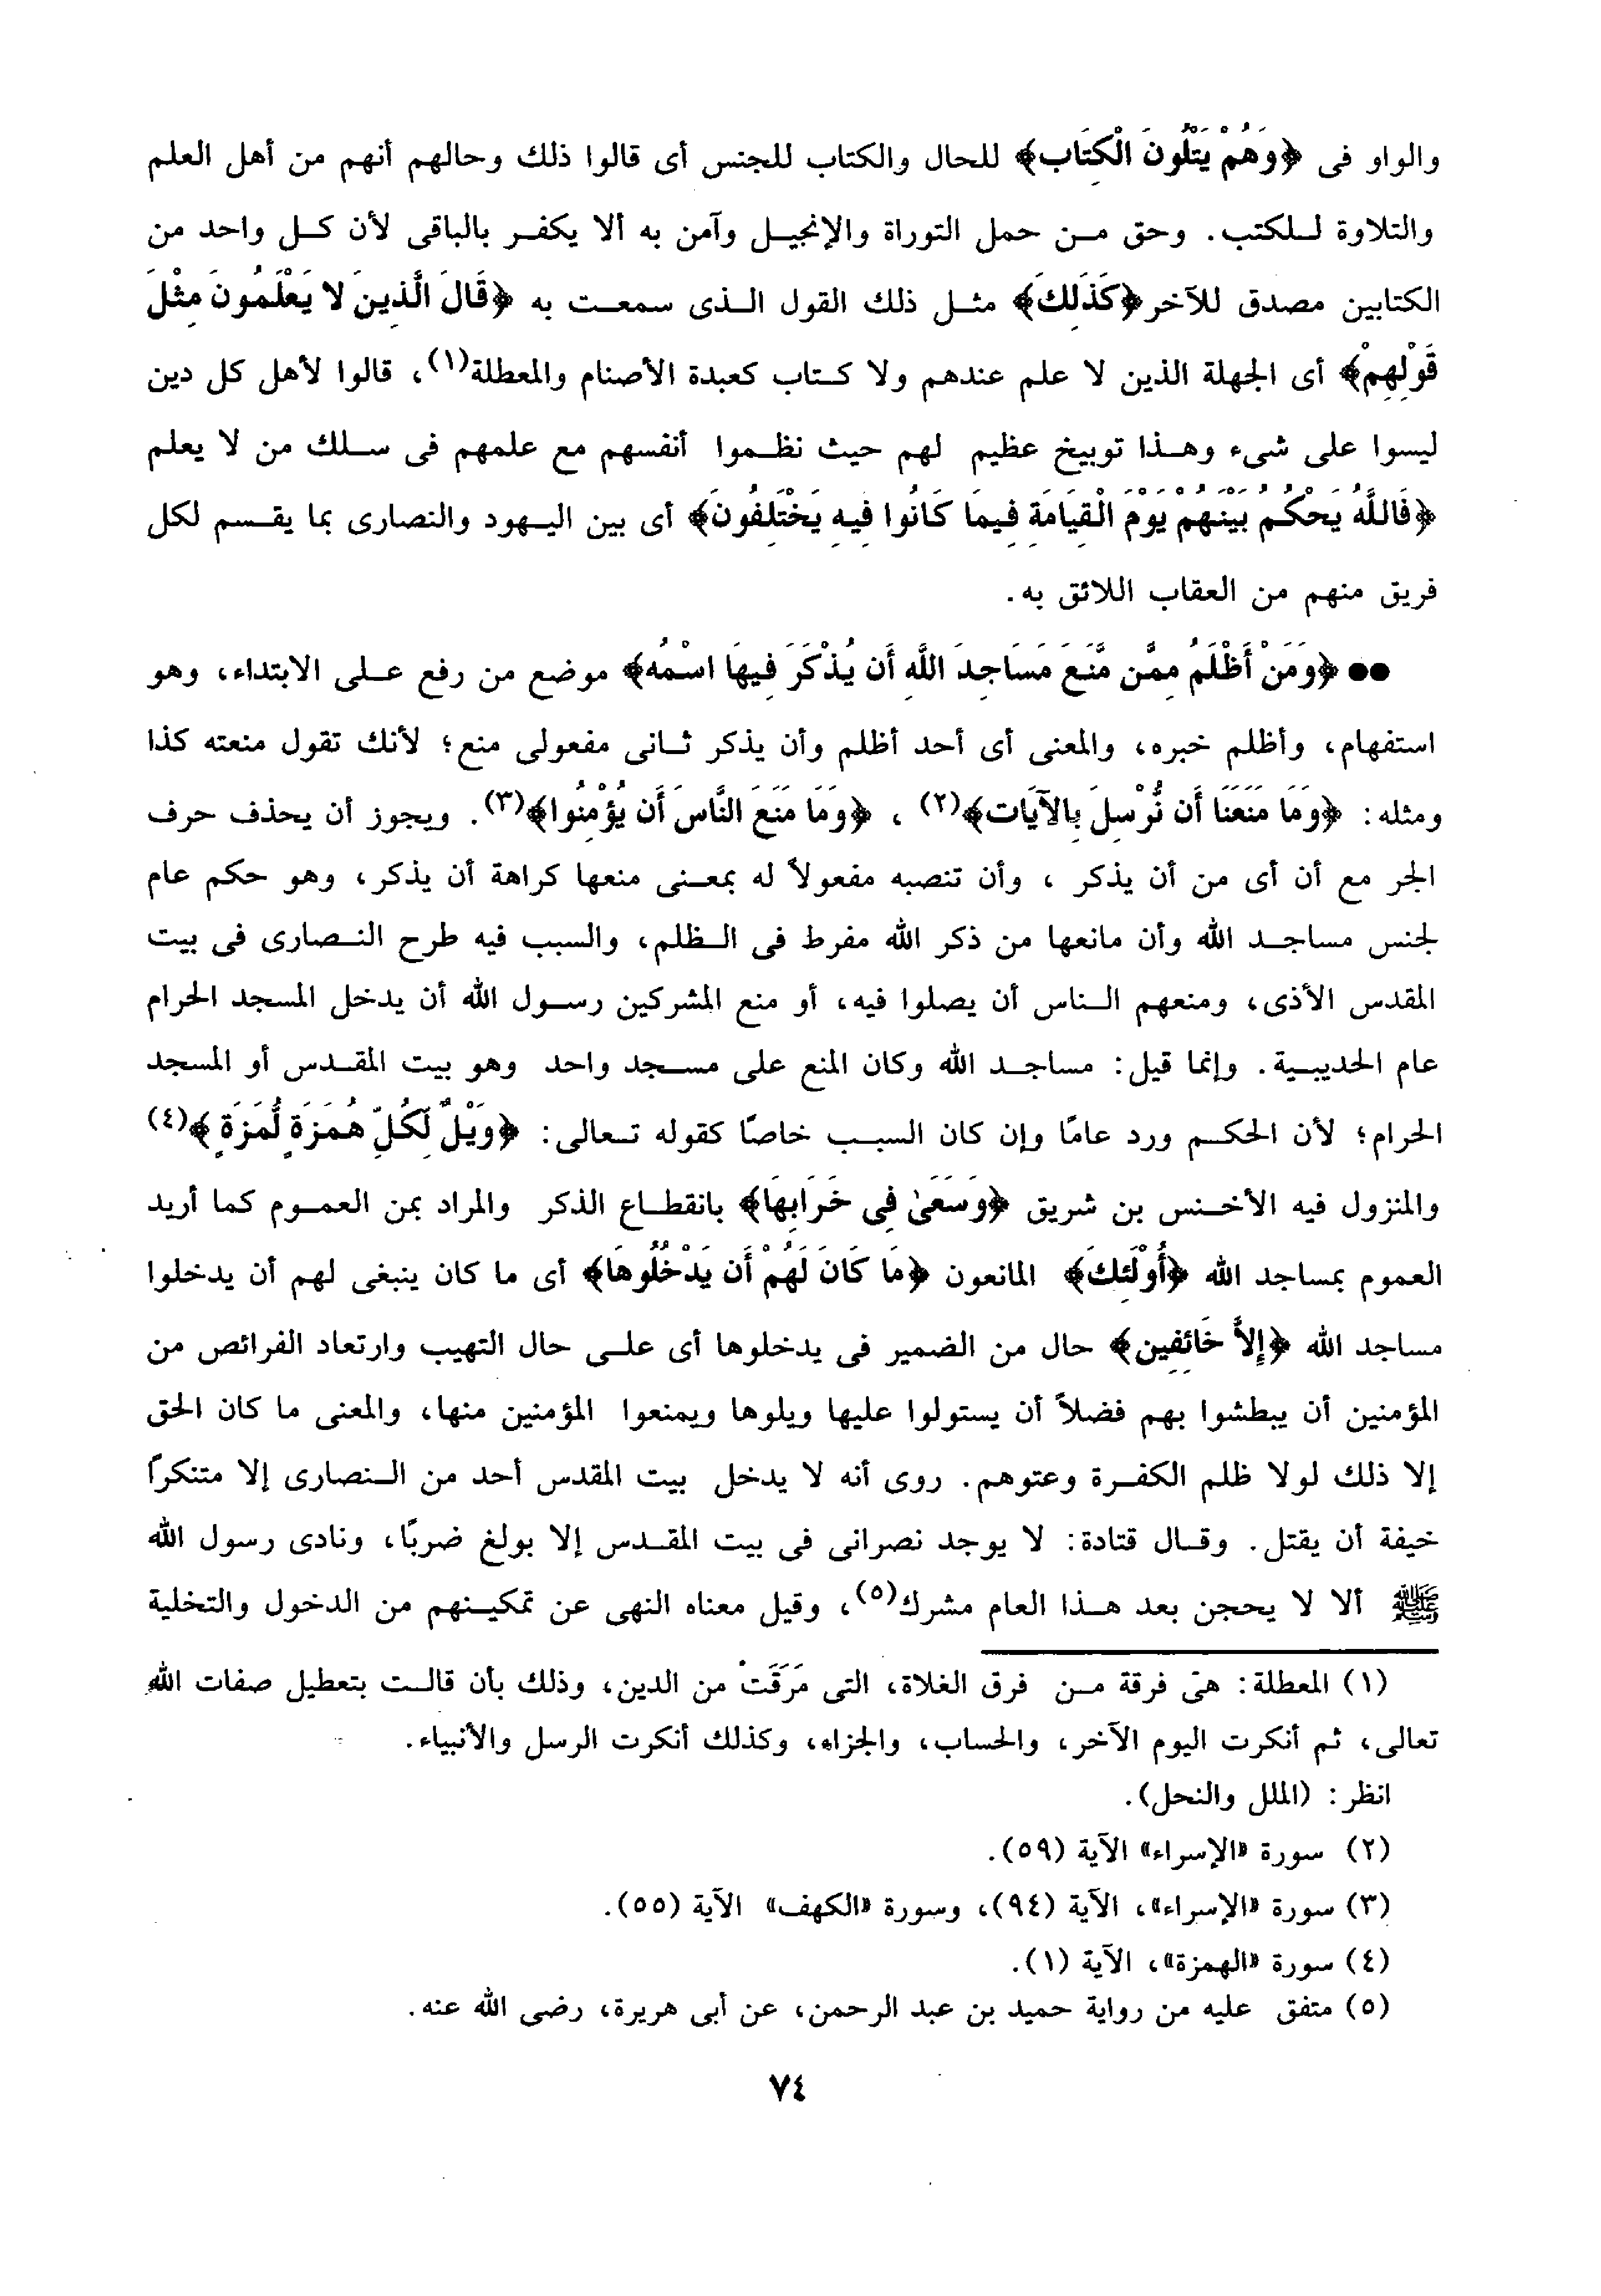 والواو فى ﴿وَهُمْ يَتْلُونَ الْكِتَاب﴾ للحال والكتاب للجنس أى قالوا ذلك وحالهم أنهم من أهل العلم
والتلاوة للكتب. وحق من حمل التوراة والإنجيل وآمن به ألا يكفر بالباقى لأن كل واحد من
الكتابين مصدق للآخر ﴿كَذَلِكَ﴾ مثل ذلك القول الذى سمعت به ﴿قَالَ الَّذِينَ لا يَعْلَمُونَ مِثْلَ
قَوْلِهِمْ﴾ أى الجهلة الذين لا علم عندهم ولا كتاب كعبدة الأصنام والمعطلة(١)، قالوا لأهل كل دين
ليسوا على شىء وهذا توبيخ عظيم لهم حيث نظموا أنفسهم مع علمهم فى سلك من لا يعلم
﴿فَاللَّهُ يَحْكُمُ بَيْنَهُمْ يَوْمَ الْقِيَامَةِ فِيمَا كَانُوا فِيهِ يَخْتَلِفُونَ﴾ أى بين اليهود والنصارى بما يقسم لكل
فريق منهم من العقاب اللائق به.
●● ﴿وَمَنْ أَظْلَمُ مِمَّن مَّنَعَ مَسَاجِدَ اللَّهِ أَن يُذْكَرَ فِيهَا اسْمُه﴾ موضع من رفع على الابتداء، وهو
استفهام، وأظلم خبره، والمعنى أى أحد أظلم وأن يذكر ثانى مفعولى منع؛ لأنك تقول منعته كذا
ومثله: ﴿وَمَا مَنَعَنَا أَن نُّرْسِلَ بِالآيَات﴾(٢) ، ﴿وَمَا مَنَعَ النَّاسَ أَن يُؤْمِنُوا﴾(٣). ويجوز أن يحذف حرف
الجر مع أن أى من أن يذكر ، وأن تنصبه مفعولاً له بمعنى منعها كراهة أن يذكر، وهو حكم عام
لجنس مساجد الله وأن مانعها من ذكر الله مفرط فى الظلم، والسبب فيه طرح النصارى فى بيت
المقدس الأذى، ومنعهم الناس أن يصلوا فيه، أو منع المشركين رسول الله أن يدخل المسجد الحرام
عام الحديبية. وإنما قيل: مساجد الله وكان المنع على مسجد واحد وهو بيت المقدس أو المسجد
الحرام؛ لأن الحكم ورد عامًا وإن كان السبب خاصًا كقوله تعالى: ﴿وَيْلٌ لِّكُلِّ هُمَزَةٍ لُّمَزَةٍ﴾(٤)
والمنزول فيه الأخنس بن شريق ﴿وَسَعَىٰ فِي خَرَابِهَا﴾ بانقطاع الذكر والمراد بمن العموم كما أريد
العموم بمساجد الله ﴿أُوْلَئِكَ﴾ المانعون ﴿مَا كَانَ لَهُمْ أَن يَدْخُلُوهَا﴾ أى ما كان ينبغى لهم أن يدخلوا
مساجد الله ﴿إِلاَّ خَائِفِين﴾ حال من الضمير فى يدخلوها أى على حال التهيب وارتعاد الفرائص من
المؤمنين أن يبطشوا بهم فضلاً أن يستولوا عليها ويلوها ويمنعوا المؤمنين منها، والمعنى ما كان الحق
إلا ذلك لولا ظلم الكفرة وعتوهم. روى أنه لا يدخل بيت المقدس أحد من النصارى إلا متنكرًا
خيفة أن يقتل. وقال قتادة: لا يوجد نصرانى فى بيت المقدس إلا بولغ ضربًا، ونادى رسول الله
ﷺ ألا لا يحجن بعد هذا العام مشرك(٥)، وقيل معناه النهى عن تمكينهم من الدخول والتخلية
(١) المعطلة: هى فرقة من فرق الغلاة، التى مَرَقَتْ من الدين، وذلك بأن قالت بتعطيل صفات الله
تعالى، ثم أنكرت اليوم الآخر، والحساب، والجزاء، وكذلك أنكرت الرسل والأنبياء.
انظر: (الملل والنحل).
(٢) سورة «الإسراء» الآية (٥٩).
(٣) سورة «الإسراء»، الآية (٩٤)، وسورة «الكهف» الآية (٥٥).
(٤) سورة «الهمزة»، الآية (١).
(٥) متفق عليه من رواية حميد بن عبد الرحمن، عن أبى هريرة، رضى الله عنه.
٧٤